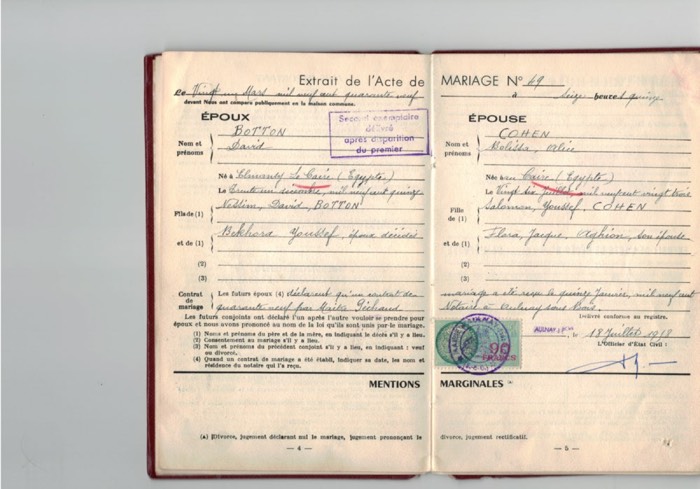 Extrait de l'Acte de MARIAGE N° 49
Le Vingt un Mars mil neuf cent quarante neuf à seize heures quinze
devant Nous ont comparu publiquement en la maison commune.
ÉPOUX
Second exemplaire
délivré
après disparition
du premier
Nom et prénoms
BOTTON
David
Né à Le Caire (Egypte)
Le trente un décembre, mil neuf cent quinze
Fils de (1) Nissim, David, BOTTON
et de (1) Bekhora Youssef, époux décédés
(2)
(3)
Contrat de mariage
Les futurs époux (4) déclarent qu'un contrat de mariage a été reçu le quinze Janvier, mil neuf cent
quarante neuf par Maître Notaire à Aulnay sous Bois.
Les futurs conjoints ont déclaré l'un après l'autre vouloir se prendre pour
époux et nous avons prononcé au nom de la loi qu'ils sont unis par le mariage.
(1) Noms et prénoms du père et de la mère, en indiquant le décès s'il y a lieu.
(2) Consentement au mariage s'il y a lieu.
(3) Nom et prénoms du précédent conjoint s'il y a lieu, en indiquant : veuf
ou divorcé.
(4) Quand un contrat de mariage a été établi, indiquer sa date, les nom et
résidence du notaire qui l'a reçu.
ÉPOUSE
Nom et prénoms
COHEN
Alice
Née au Caire (Egypte)
Le Vingt six juillet mil neuf cent vingt trois
Fille de (1) Salomon, Youssef, COHEN
et de (1) Flora, Jacque, Aghion, son épouse
(2)
(3)
Délivré conforme au registre.
AULNAY le 18 Juillet
L'Officier d'État Civil :
90
FRANCS
MENTIONS MARGINALES (a)
(a) Divorce, jugement déclarant nul le mariage, jugement prononçant le divorce, jugement rectificatif.
— 4 —
— 5 —